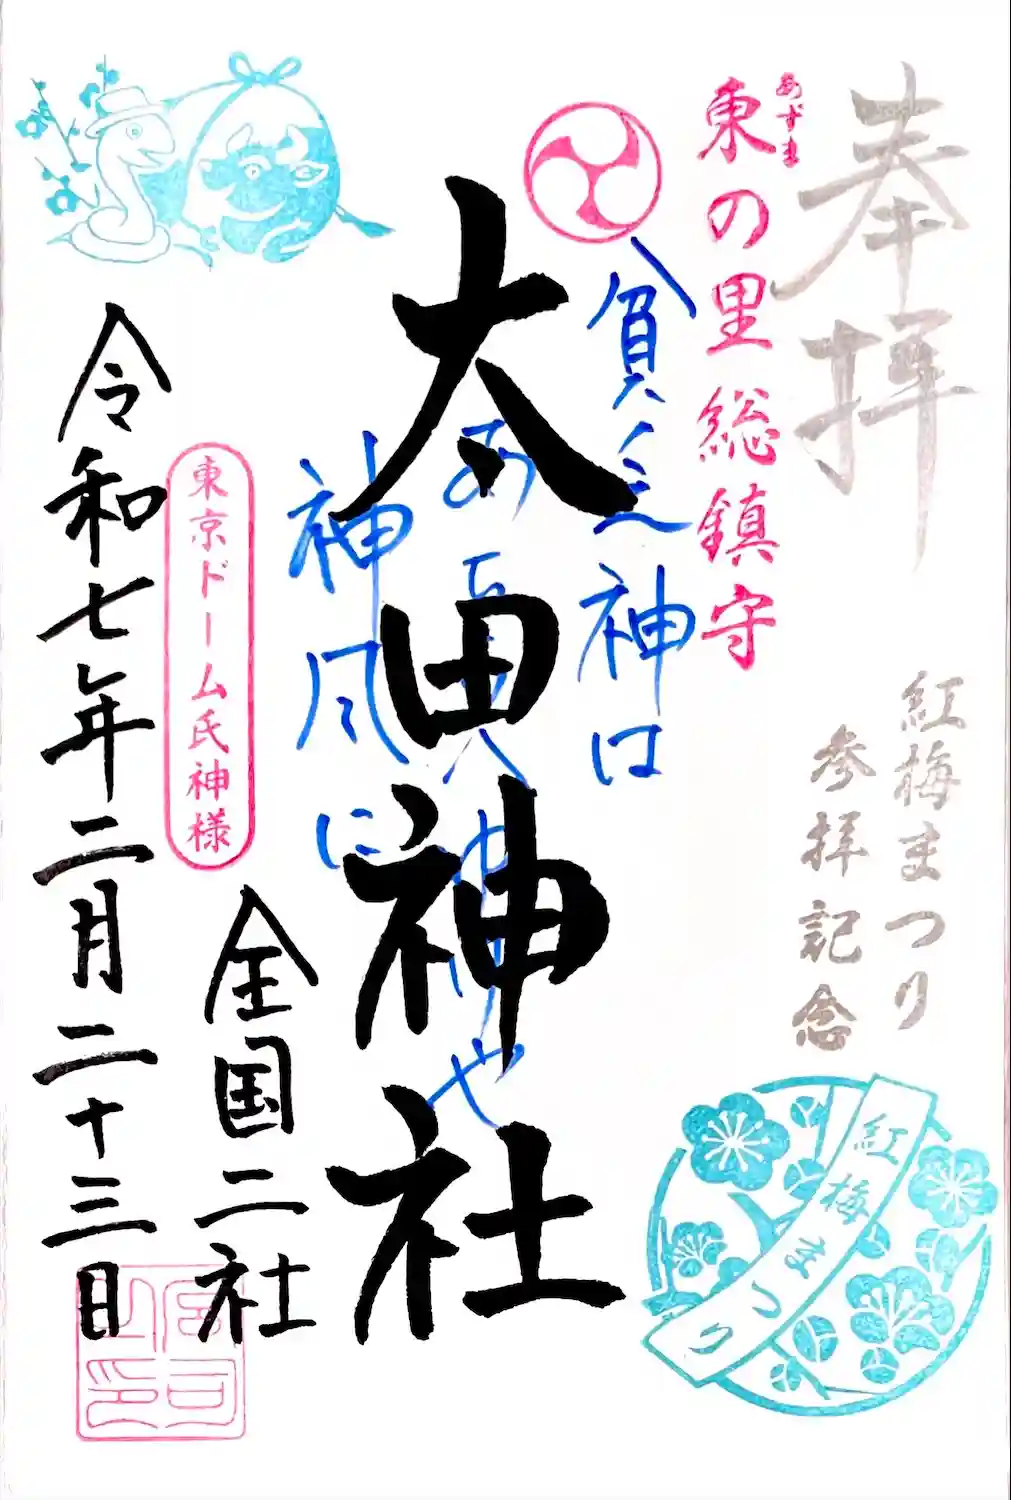 奉拝
紅梅まつり
参拝記念
紅梅まつり
あずま
東の里総鎮守
貧乏神は
神風に
太田神社
全国二社
東京ドーム氏神様
令和七年二月二十三日
宮司之印